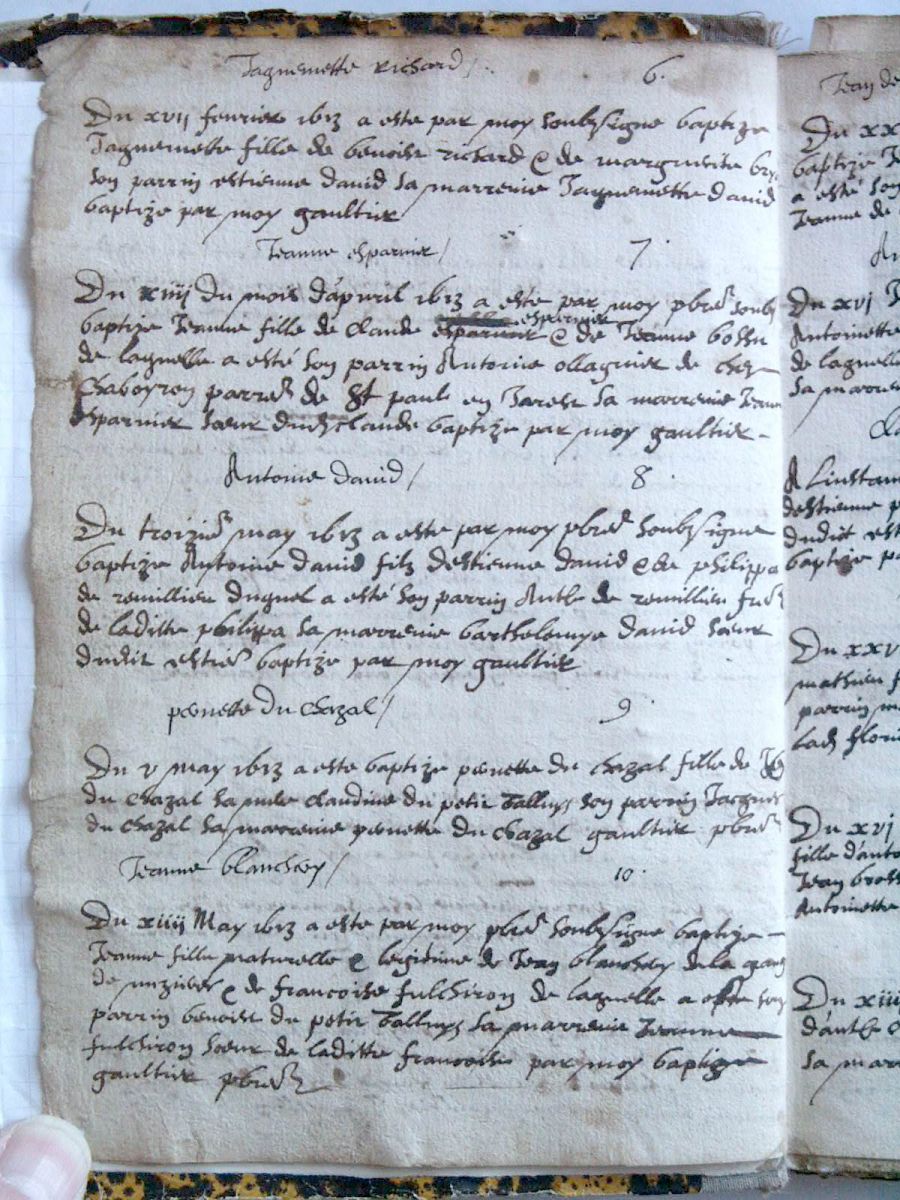 Jaquemette richard / . 6.
Du xvij febvrier 1613 a este par moy soubzsigne baptize
Jaquemette fille de benoist richard & de marguerite
son parrin estienne david sa marreine Jaquemette david
baptize par moy gaultier
Jeanne esparnier / 7.
Du xiiij du mois dapvril 1613 a este par moy pbre soubz
baptize Jeanne fille de Claude esparnier esparnier & de Jeanne bossu
de laquelle a esté son parrin Antoine ollagnier de chez
Chaboyron parre de St paul en Jarest sa marreine Jeanne
esparnier sœur dud Claude baptize par moy gaultier -
Antoine david / 8.
Du troizie may 1613 a este par moy pbre soubzsigne
baptize Antoine david filz destienne david & de philippa
de remillieu duquel a esté son parrin Anth de remillieu
de laditte philippa sa marreine barthelemye david sœur
dudit estie baptize par moy gaultier
pernette du Chazal / 9
Du v may 1613 a este baptize pernette du Chazal fille de
du Chazal sa mere Claudine du petit son parrin Jacques
du Chazal sa marreine pernette du Chazal gaultier pbre
Jeanne blanchery / 10.
Du xiiij May 1613 a este par moy pbre soubzsigne baptize -
Jeanne fille naturelle & legitime de Jean blanchery de la
de & de francoise fulchiron de laquelle a este son
parrin benoist du petit sa marreine Jeanne
fulchiron sœur de laditte francoise par moy baptize
gaultier pbre
Jean de
Du xx
baptize
a esté son
Jeanne de
Du xvj
Antoinette
de laquelle
sa marreine
A Linstan
destienne
dudit est
baptize pa
Du xxv
mathieu f
parrin
Du xvj
fille d'anto
Jean bross
Antoinette
Du xiij
d'anth
sa mar